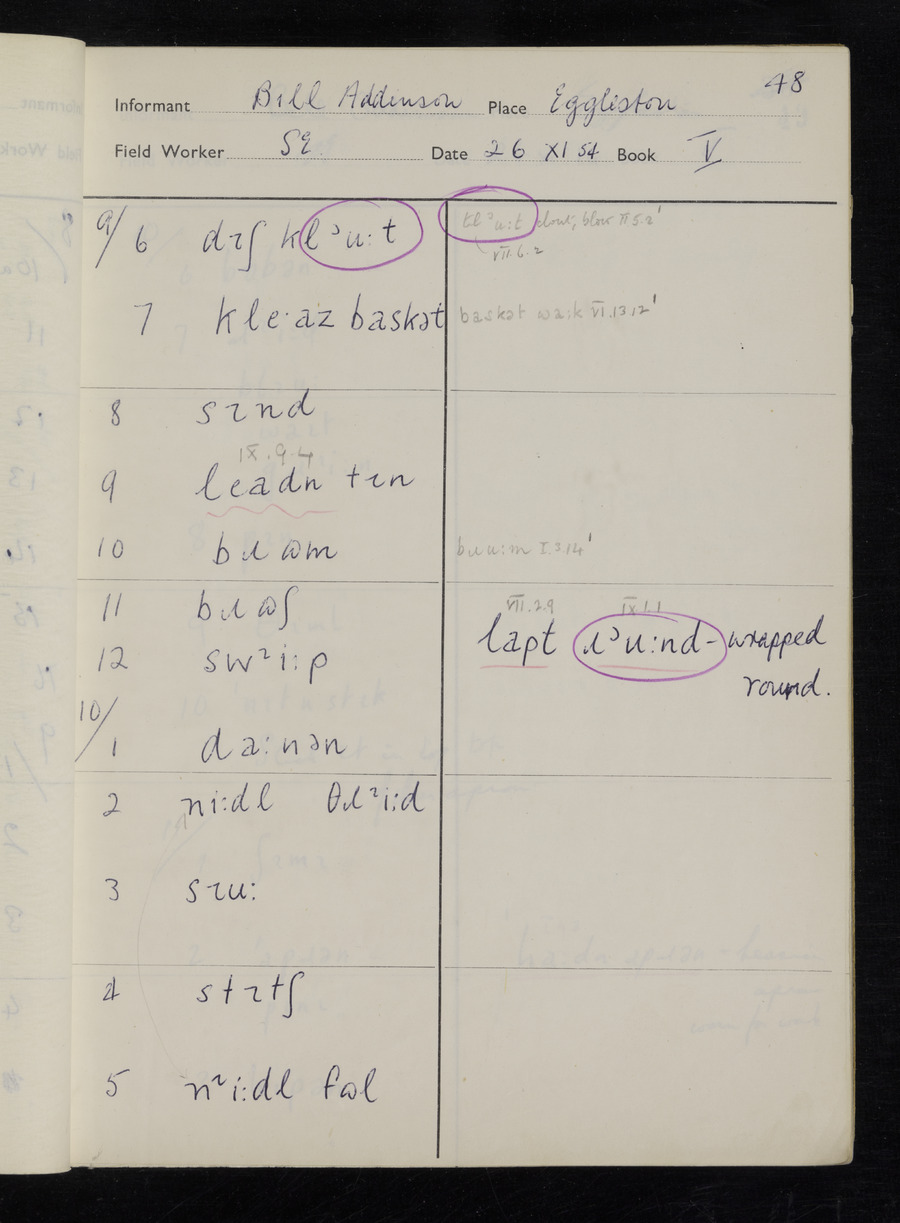 48
Informant Bill Addinson Place Eggliston
Field Worker SE. Date 26 XI 54 Book V
9/6 dɪʃ klᵊu:t
klᵊu:t clout, blow VI 5.2'
VII.6.2
7 kle·əz baskət
baskət wa:k VI.13.12'
8 sɪnd
IX.9.4
9 leadn tɪn
10 bɹɷm
bɹu:m I.3.14'
11 bɹɷʃ
VII.2.9 IX.1.1
lapt ɹᵊu:nd - wrapped
round.
12 swᶦi:p
10/1 da:nən
2 ni:dl θɹᶦi:d
3 sɪu:
4 stɪtʃ
5 nᶦi:dl fɷl